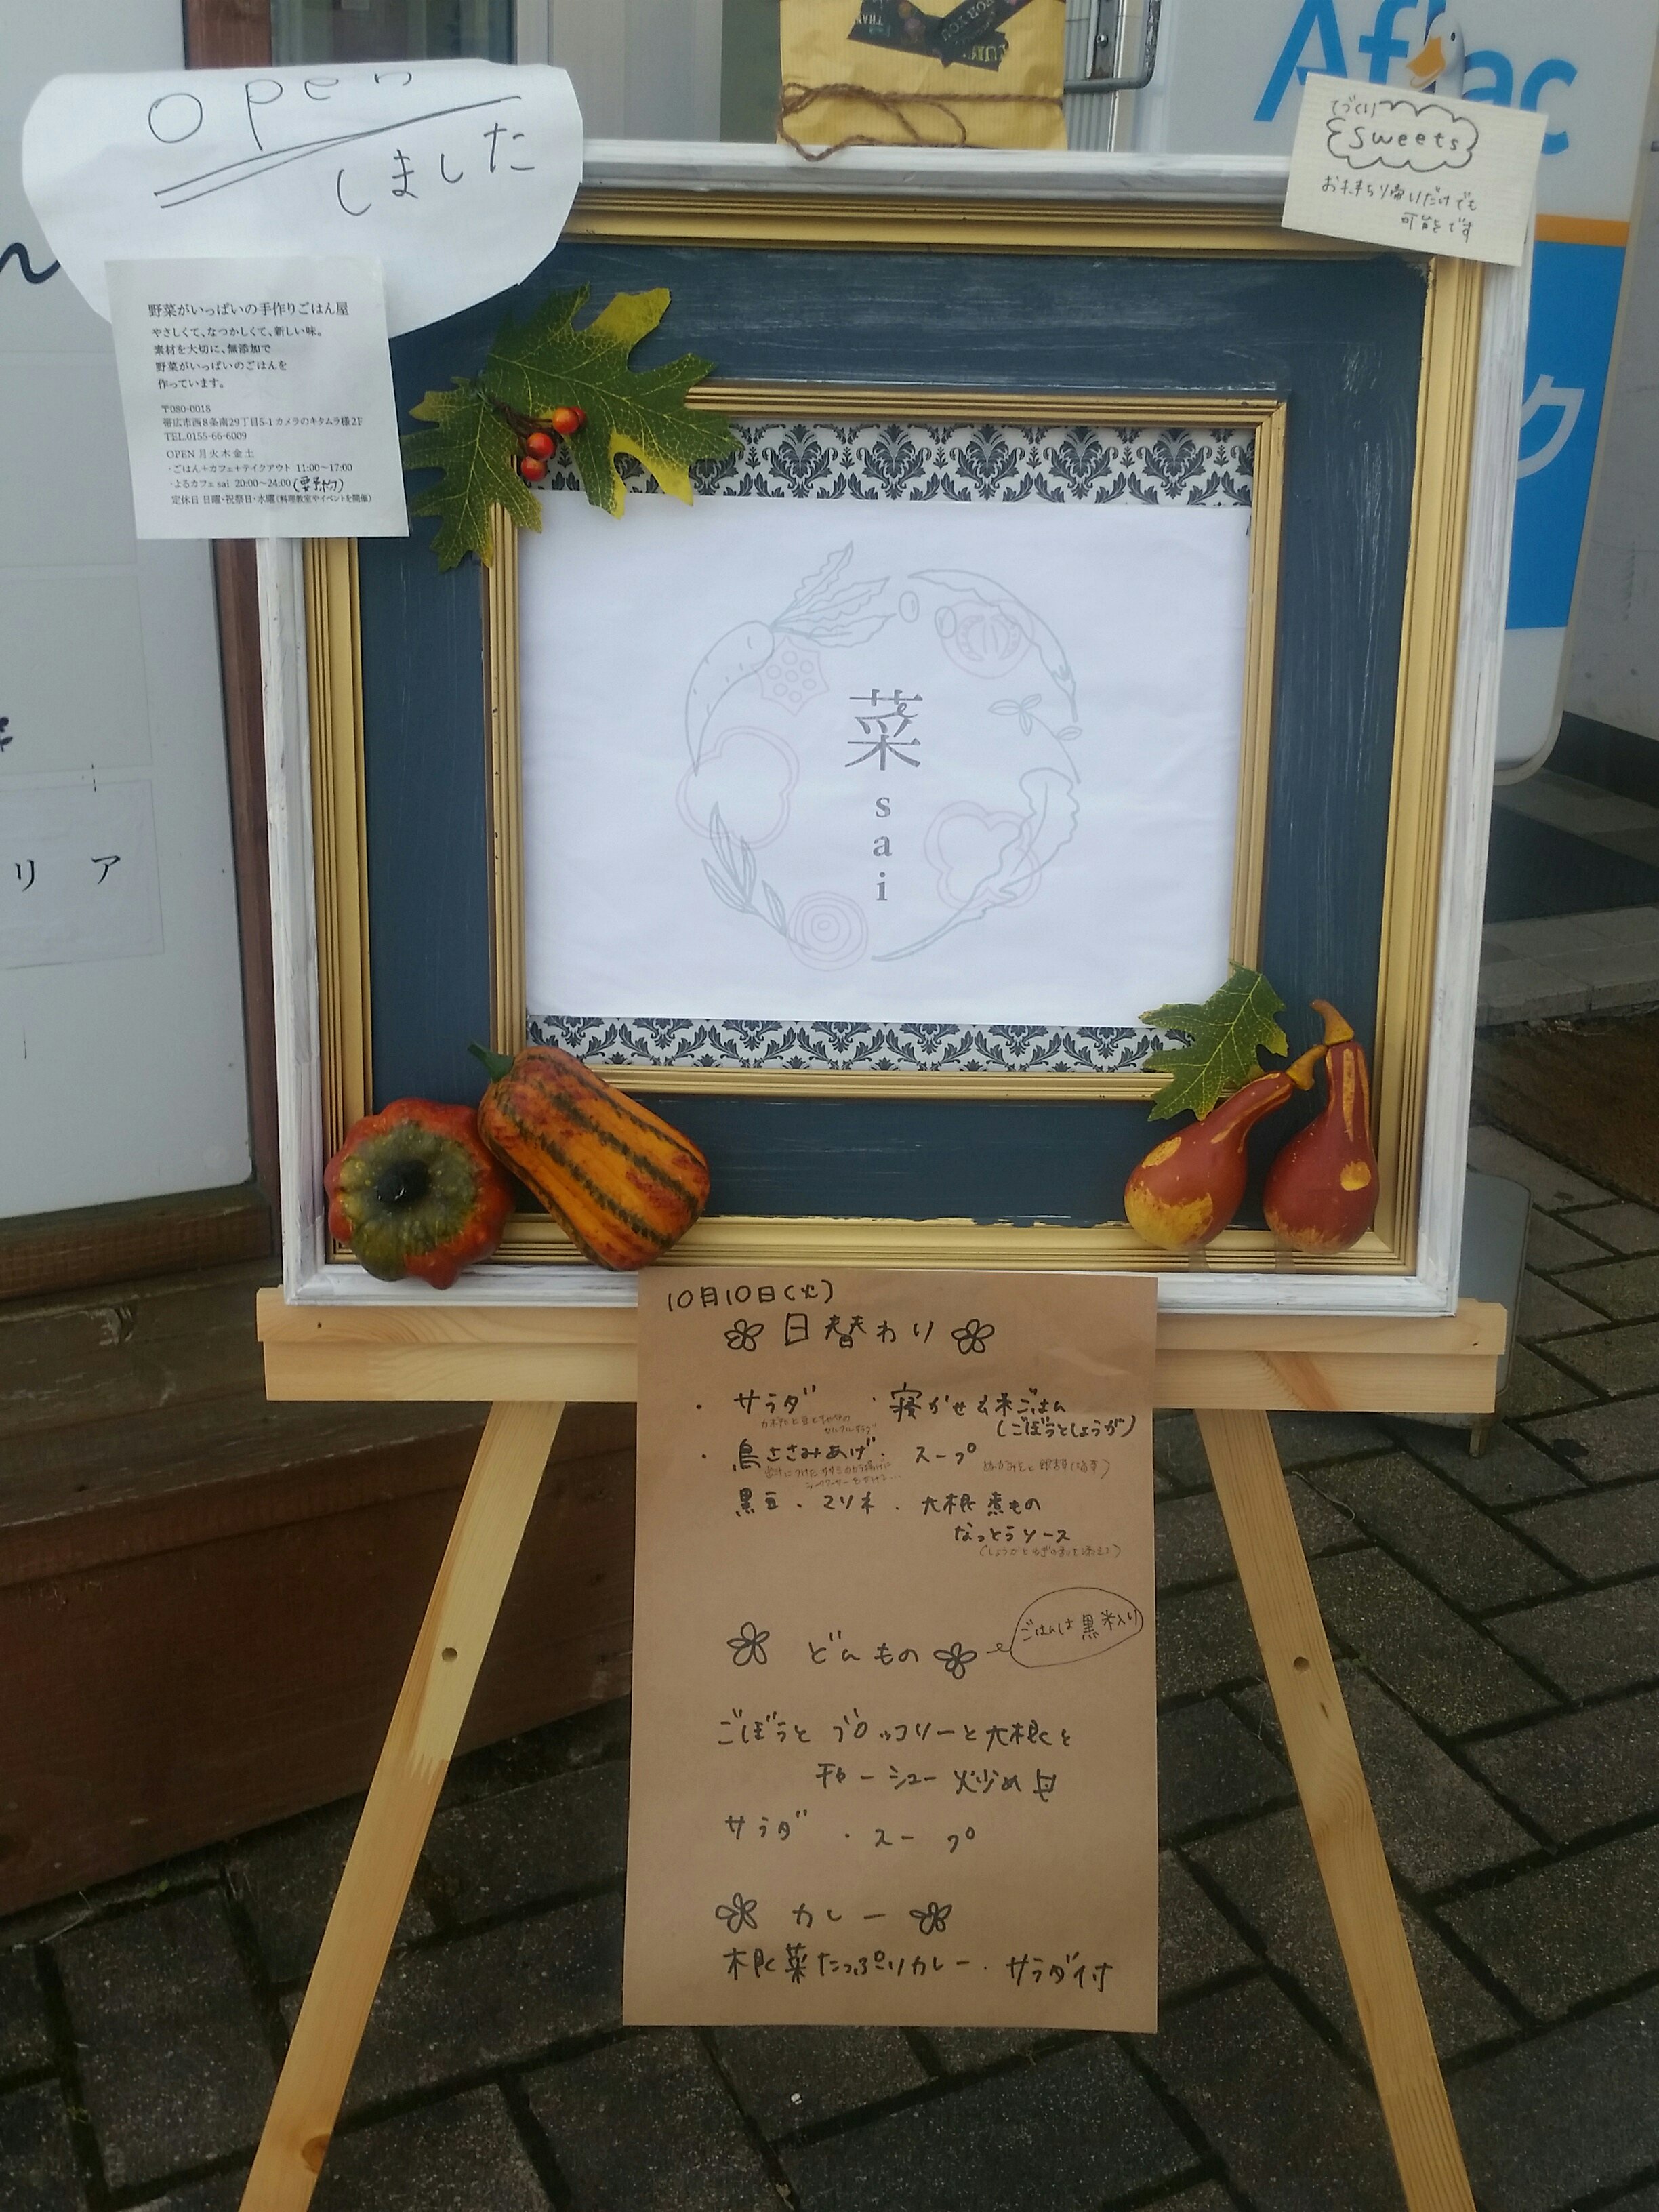 open
しました
野菜がいっぱいの手作りごはん屋
やさしくて、なつかしくて、新しい味。
素材を大切に、無添加で
野菜がいっぱいのごはんを
作っています。
〒080-0018
帯広市西8条南29丁目5-1 カメラのキタムラ様2F
TEL.0155-66-6009
OPEN 月火木金土
・ごはん+カフェ+テイクアウト 11:00〜17:00
・よるカフェ sai 20:00〜24:00(要予約)
定休日 日曜・祝祭日・水曜(料理教室やイベントを開催)
FOR YOU
Aflac
てづくり
sweets
お持ち帰りだけでも
可能です
ク
リア
菜
sai
10月10日(火)
日替わり
・サラダ ・寝かせ玄米ごはん
(ごぼうとしょうが)
・鳥ささみあげ・スープ
黒豆・マリネ・大根煮もの
なっとうソース
どんもの
ごはんは黒米入り
ごぼうとブロッコリーと大根と
チャーシュー炒め丼
サラダ・スープ
カレー
根菜たっぷりカレー・サラダ付